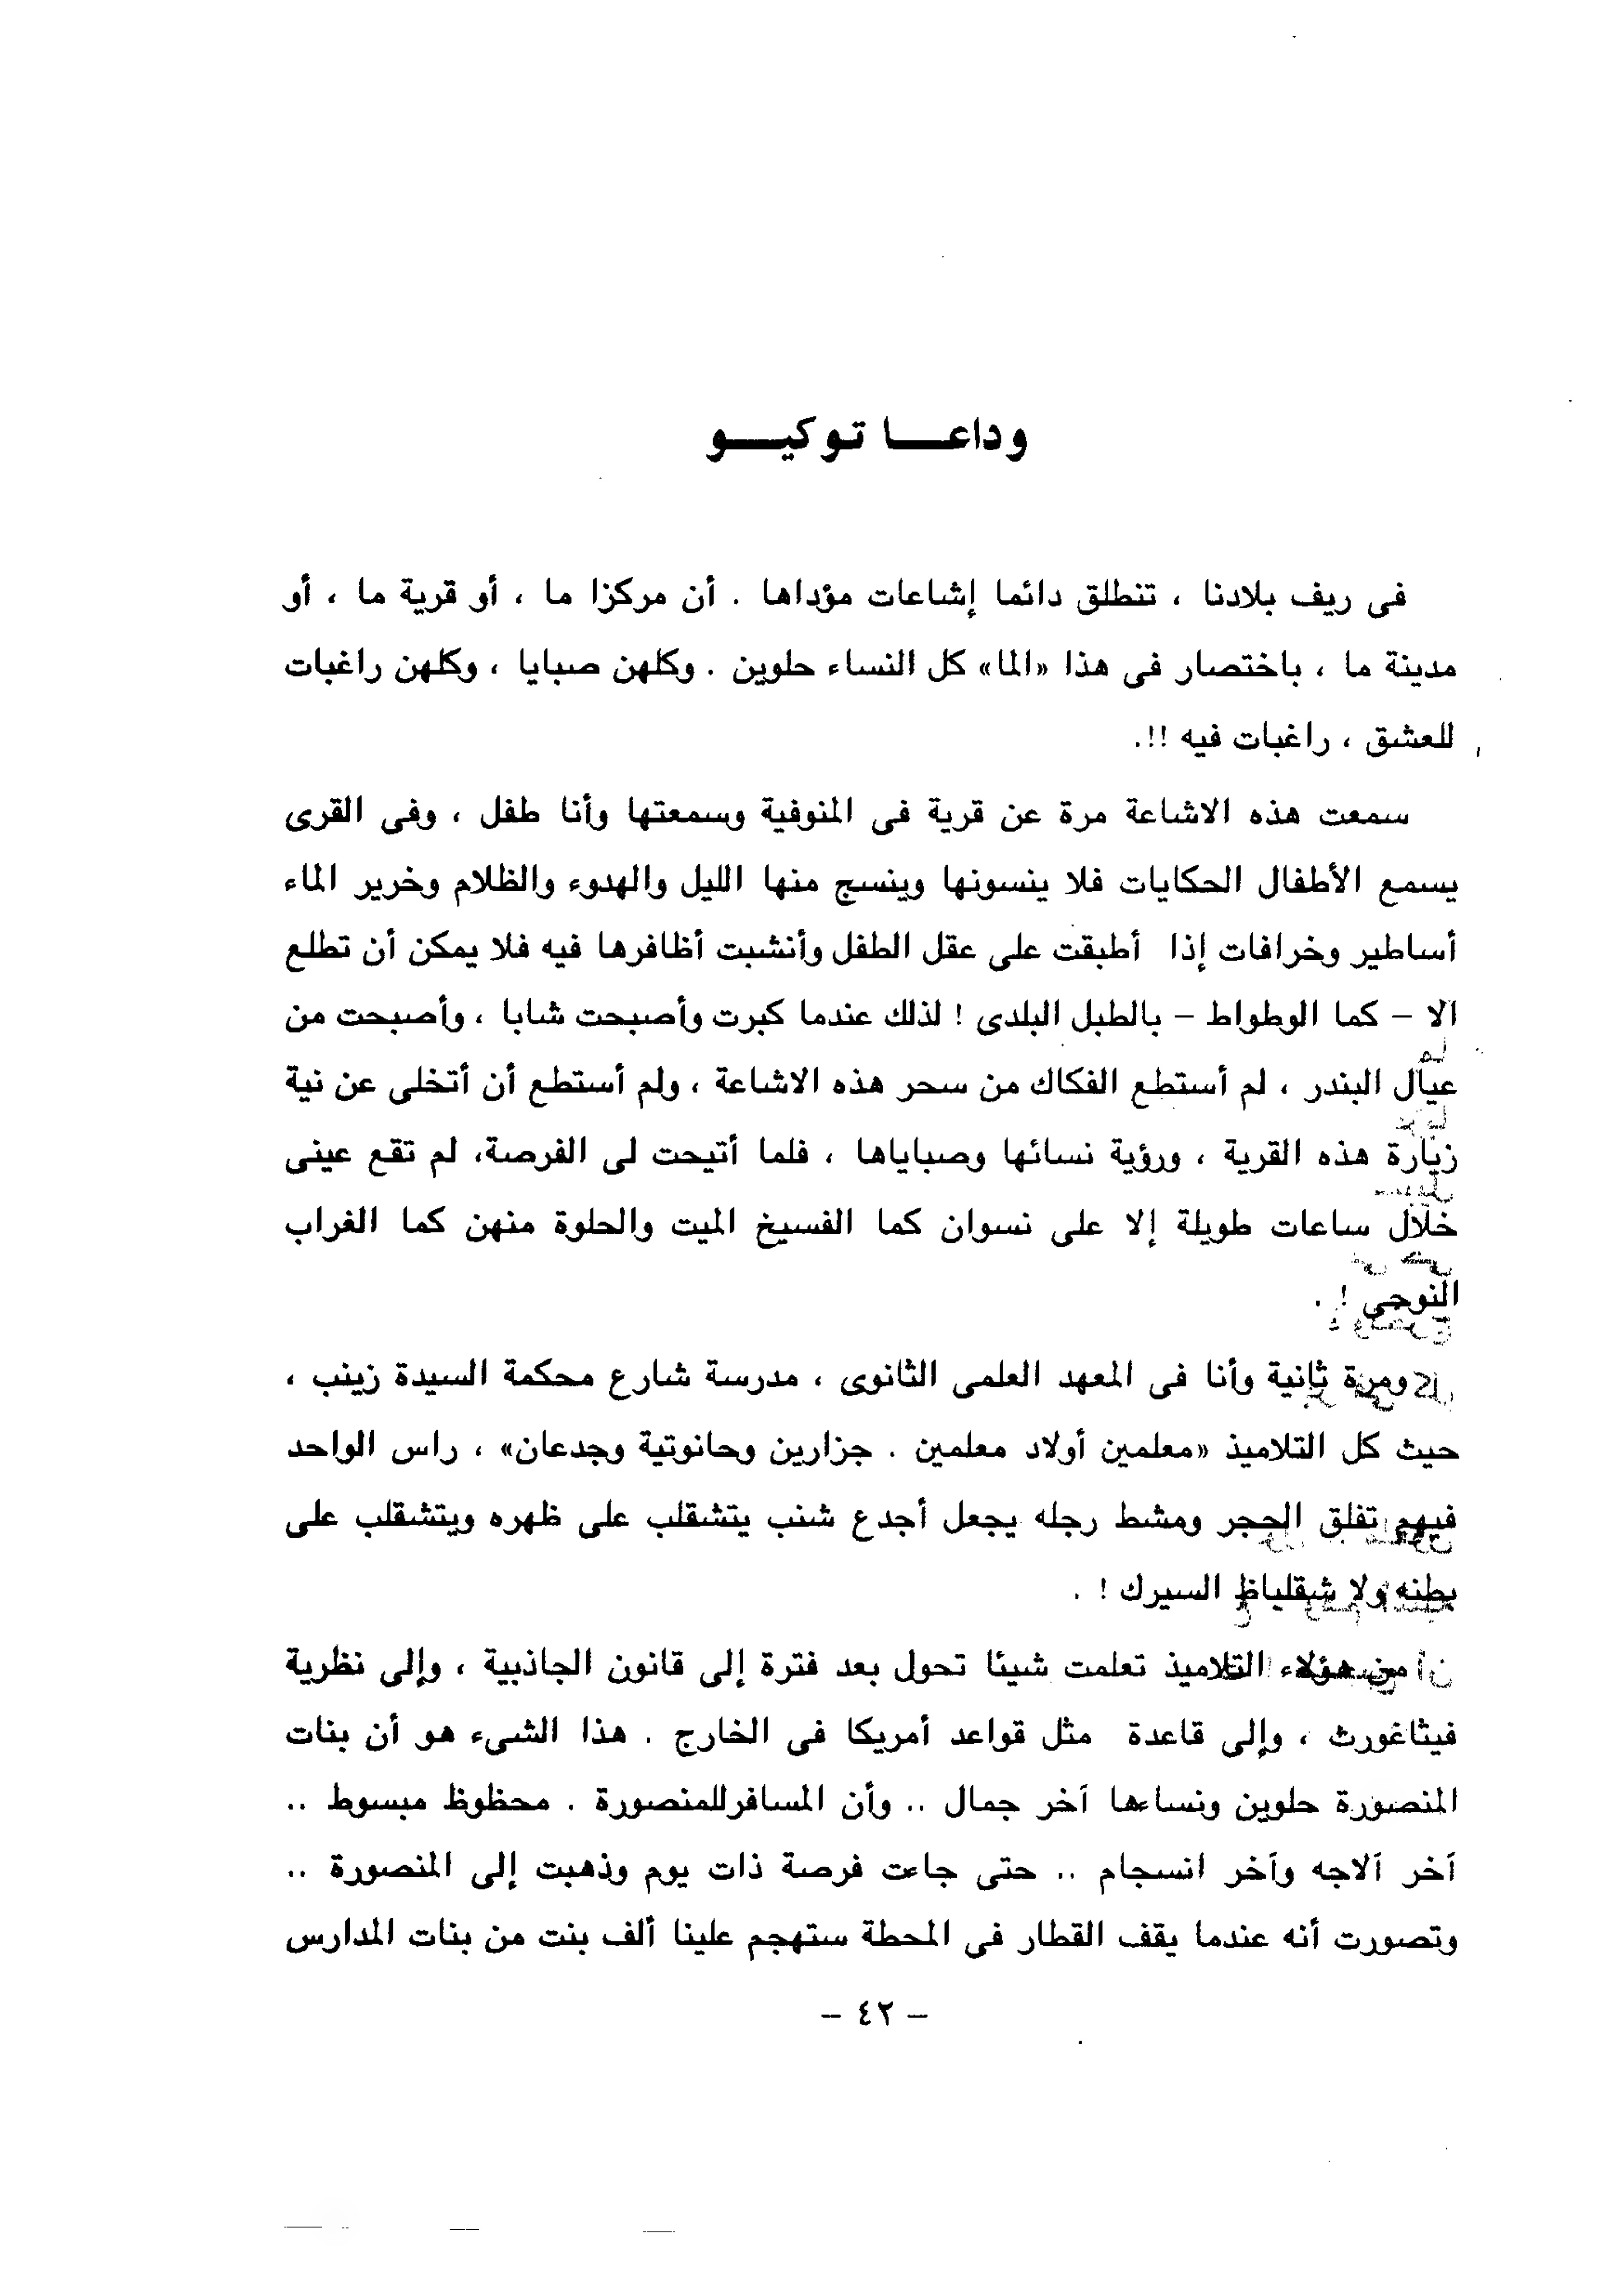 وداعـــا توكيـــو
فى ريف بلادنا ، تنطلق دائما إشاعات مؤداها . أن مركزا ما ، أو قرية ما ، أو
مدينة ما ، باختصار فى هذا «الما» كل النساء حلوين . وكلهن صبايا ، وكلهن راغبات
للعشق ، راغبات فيه !!.
سمعت هذه الاشاعة مرة عن قرية فى المنوفية وسمعتها وأنا طفل ، وفى القرى
يسمع الأطفال الحكايات فلا ينسونها وينسج منها الليل والهدوء والظلام وخرير الماء
أساطير وخرافات إذا أطبقت على عقل الطفل وأنشبت أظافرها فيه فلا يمكن أن تطلع
الا – كما الوطواط – بالطبل البلدى ! لذلك عندما كبرت وأصبحت شابا ، وأصبحت من
عيال البندر ، لم أستطع الفكاك من سحر هذه الاشاعة ، ولم أستطع أن أتخلى عن نية
زيارة هذه القرية ، ورؤية نسائها وصباياها ، فلما أتيحت لى الفرصة، لم تقع عينى
خلال ساعات طويلة إلا على نسوان كما الفسيخ الميت والحلوة منهن كما الغراب
النوحى ! .
ومرة ثانية وأنا فى المعهد العلمى الثانوى ، مدرسة شارع محكمة السيدة زينب ،
حيث كل التلاميذ «معلمين أولاد معلمين . جزارين وحانوتية وجدعان» ، راس الواحد
فيهم تفلق الحجر ومشط رجله يجعل أجدع شنب يتشقلب على ظهره ويتشقلب على
بطنه ولا شقلباظ السيرك ! .
من هؤلاء التلاميذ تعلمت شيئا تحول بعد فترة إلى قانون الجاذبية ، وإلى نظرية
فيثاغورث ، وإلى قاعدة مثل قواعد أمريكا فى الخارج . هذا الشىء هو أن بنات
المنصورة حلوين ونساءها آخر جمال .. وأن المسافرللمنصورة . محظوظ مبسوط ..
آخر آلاجه وآخر انسجام .. حتى جاءت فرصة ذات يوم وذهبت إلى المنصورة ..
وتصورت أنه عندما يقف القطار فى المحطة ستهجم علينا ألف بنت من بنات المدارس
– ٤٢ –